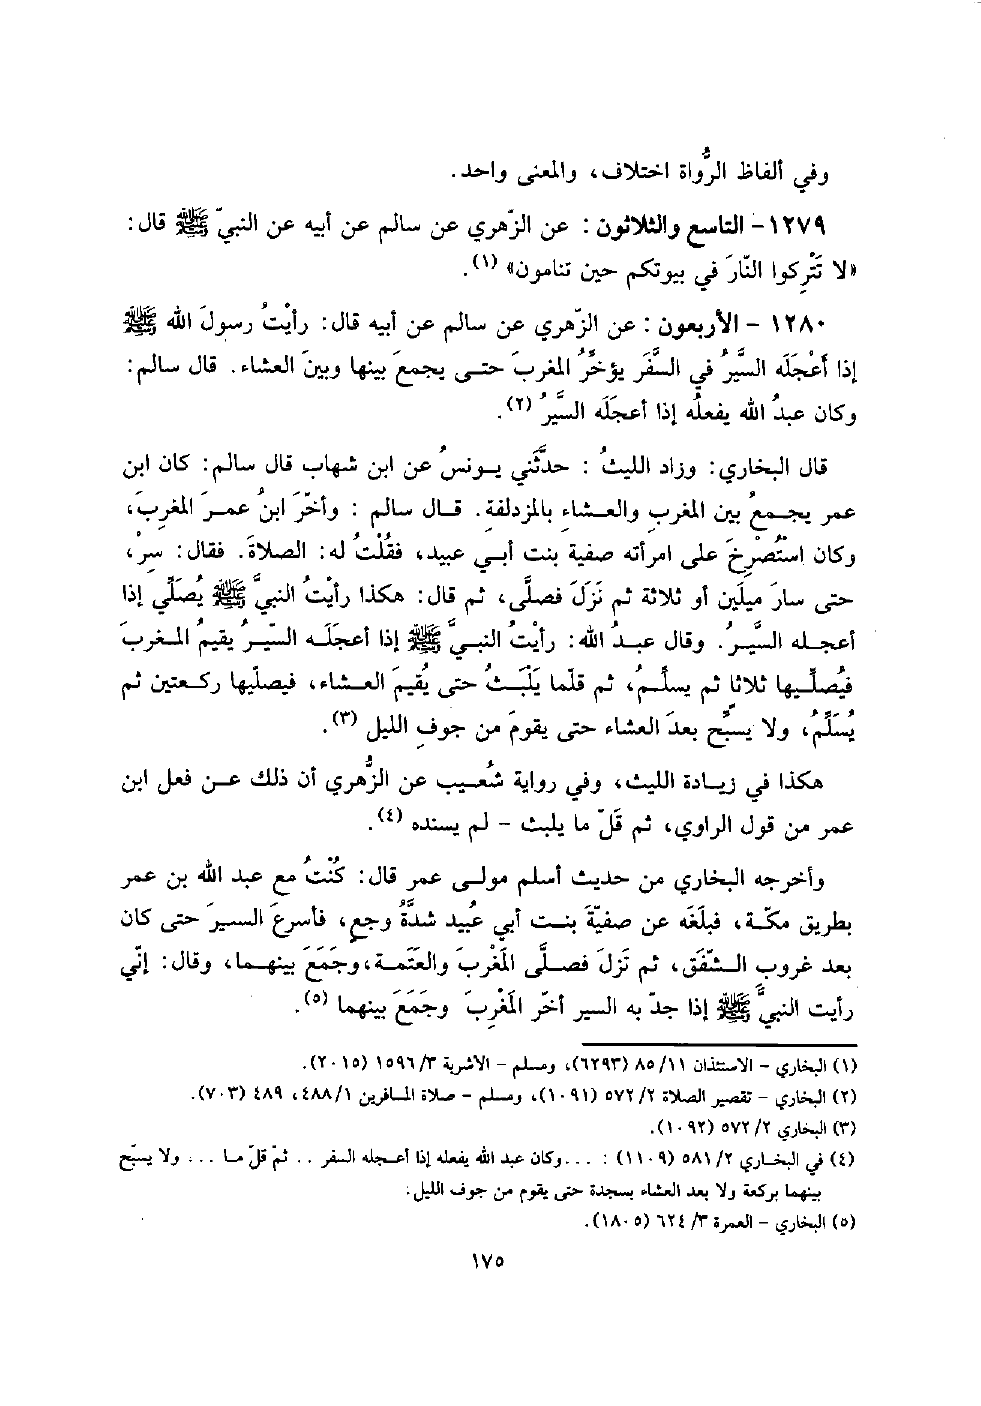 وفي ألفاظ الرُّواة اختلاف، والمعنى واحد.
١٢٧٩- التاسع والثلاثون : عن الزّهري عن سالم عن أبيه عن النبيّ ﷺ قال:
«لا تَتْرِكوا النّارَ في بيوتكم حين تنامون» (١).
١٢٨٠ - الأربعون : عن الزّهري عن سالم عن أبيه قال: رأيْتُ رسولَ الله ﷺ
إذا أعْجَلَه السَّيرُ في السَّفَر يؤخِّرُ المغربَ حتى يجمعَ بينها وبينَ العشاء. قال سالم:
وكان عبدُ الله يفعلُه إذا أعجَلَه السَّيرُ (٢).
قال البخاري: وزاد الليثُ : حدَّثَني يونسُ عن ابن شهاب قال سالم: كان ابن
عمر يجمعُ بين المغربِ والعشاءِ بالمزدلفةِ. قال سالم : وأخّرَ ابنُ عمرَ المغربَ،
وكان استُصْرِخَ على امرأته صفية بنت أبي عبيد، فقُلْتُ له: الصلاةَ. فقال: سِرْ،
حتى سارَ ميلَين أو ثلاثة ثم نَزَلَ فصلَّى، ثم قال: هكذا رأيْتُ النبيَّ ﷺ يُصَلِّي إذا
أعجله السَّيرُ. وقال عبدُ الله: رأيْتُ النبيَّ ﷺ إذا أعجلَه السّيرُ يقيمُ المغربَ
فيُصلّيها ثلاثا ثم يسلِّمُ، ثم قلّما يَلْبَثُ حتى يُقيمَ العشاء، فيصلّيها ركعتين ثم
يُسَلِّمُ، ولا يسبِّح بعدَ العشاء حتى يقومَ من جوفِ الليل (٣).
هكذا في زيادة الليث، وفي رواية شُعيب عن الزُّهري أن ذلك عن فعل ابن
عمر من قول الراوي، ثم قلّ ما يلبث - لم يسنده (٤).
وأخرجه البخاري من حديث أسلم مولى عمر قال: كُنْتُ مع عبد الله بن عمر
بطريق مكّة، فبلَغَه عن صفيّةَ بنت أبي عُبيد شدَّةُ وجع، فأسرعَ السيرَ حتى كان
بعد غروبِ الشّفَق، ثم نَزلَ فصلَّى المَغْربَ والعَتَمة، وجَمَعَ بينهما، وقال: إنّي
رأيت النبيَّ ﷺ إذا جدّ به السير أخّر المَغْرِبَ وجَمَعَ بينهما (٥).
(١) البخاري - الاستئذان ١١/ ٨٥ (٦٢٩٣)، ومسلم - الأشربة ٣/ ١٥٩٦ (٢٠١٥).
(٢) البخاري - تقصير الصلاة ٢/ ٥٧٢ (١٠٩١)، ومسلم - صلاة المسافرين ١/ ٤٨٨، ٤٨٩ (٧٠٣).
(٣) البخاري ٢/ ٥٧٢ (١٠٩٢).
(٤) في البخاري ٢/ ٥٨١ (١١٠٩) : ...وكان عبد الله يفعله إذا أعجله السفر .. ثمّ قلّ ما ... ولا يسبّح
بينهما بركعة ولا بعد العشاء بسجدة حتى يقوم من جوف الليل.
(٥) البخاري - العمرة ٣/ ٦٢٤ (١٨٠٥).
١٧٥